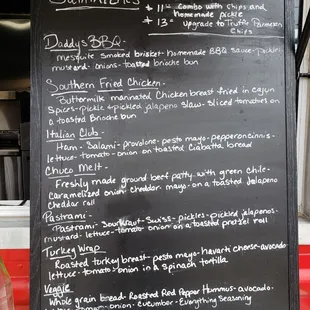 Sammiches
$11 - Combo with Chips and
Homemade pickle
$13 - upgrade to Truffle Parmesan
Chips
Daddy's BBQ -
mesquite smoked brisket - homemade BBQ sauce - pickles
mustard - onions - toasted brioche bun
Southern Fried Chicken -
Buttermilk marinated Chicken breast fried in cajun
Spices - pickle + pickled jalapeno slaw - sliced tomatoes on
a toasted Brioche bun
Italian Club -
Ham - Salami - provolone - pesto mayo - pepperoncinis -
lettuce - tomato - onion on toasted Ciabatta bread
Chuco Melt -
Freshly made ground beef patty with green chile -
caramelized onion - cheddar - mayo - on a toasted Jalapeno
Cheddar roll
Pastrami -
Pastrami - Sourkraut - Swiss - pickles - pickled jalapenos -
mustard - lettuce - tomato - onion on a toasted pretzel roll
Turkey Wrap
Roasted turkey breast - pesto mayo - havarti cheese - avocado
lettuce - tomato - onion in a spinach tortilla
Veggie
Whole grain bread - Roasted Red Pepper Hummus - avocado -
tomato - onion - cucumber - Everything Seasoning